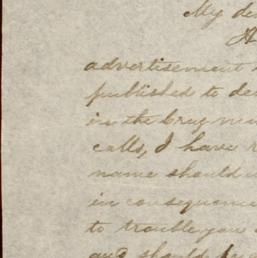 My de
A
advertisement
published to de
in the
calls, I have r
name should
in consequence
to trouble you
and should